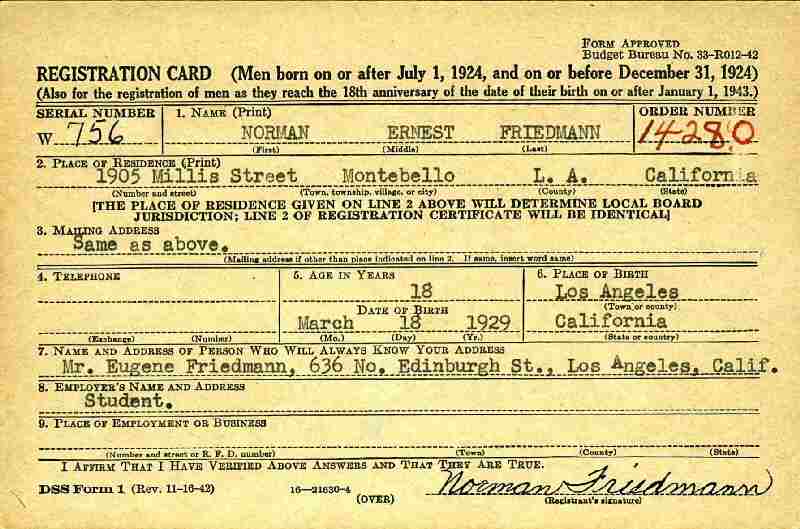 FORM APPROVED
Budget Bureau No. 33-R012-42
REGISTRATION CARD (Men born on or after July 1, 1924, and on or before December 31, 1924)
(Also for the registration of men as they reach the 18th anniversary of the date of their birth on or after January 1, 1943.)
SERIAL NUMBER 1. NAME (Print) ORDER NUMBER
W 756 NORMAN ERNEST FRIEDMANN 14280
(First) (Middle) (Last)
2. PLACE OF RESIDENCE (Print)
1905 Millis Street Montebello L. A. California
(Number and street) (Town, township, village, or city) (County) (State)
[THE PLACE OF RESIDENCE GIVEN ON LINE 2 ABOVE WILL DETERMINE LOCAL BOARD
JURISDICTION; LINE 2 OF REGISTRATION CERTIFICATE WILL BE IDENTICAL]
3. MAILING ADDRESS
Same as above.
(Mailing address if other than place indicated on line 2. If same, insert word same)
4. TELEPHONE 5. AGE IN YEARS 6. PLACE OF BIRTH
18 Los Angeles
DATE OF BIRTH (Town or county)
March 18 1929 California
(Exchange) (Number) (Mo.) (Day) (Yr.) (State or country)
7. NAME AND ADDRESS OF PERSON WHO WILL ALWAYS KNOW YOUR ADDRESS
Mr. Eugene Friedmann, 636 No. Edinburgh St., Los Angeles, Calif.
8. EMPLOYER'S NAME AND ADDRESS
Student.
9. PLACE OF EMPLOYMENT OR BUSINESS
(Number and street or R. F. D. number) (Town) (County) (State)
I AFFIRM THAT I HAVE VERIFIED ABOVE ANSWERS AND THAT THEY ARE TRUE.
DSS Form 1 (Rev. 11-16-42) 16—21630-4 Norman Friedmann
(OVER) (Registrant's signature)